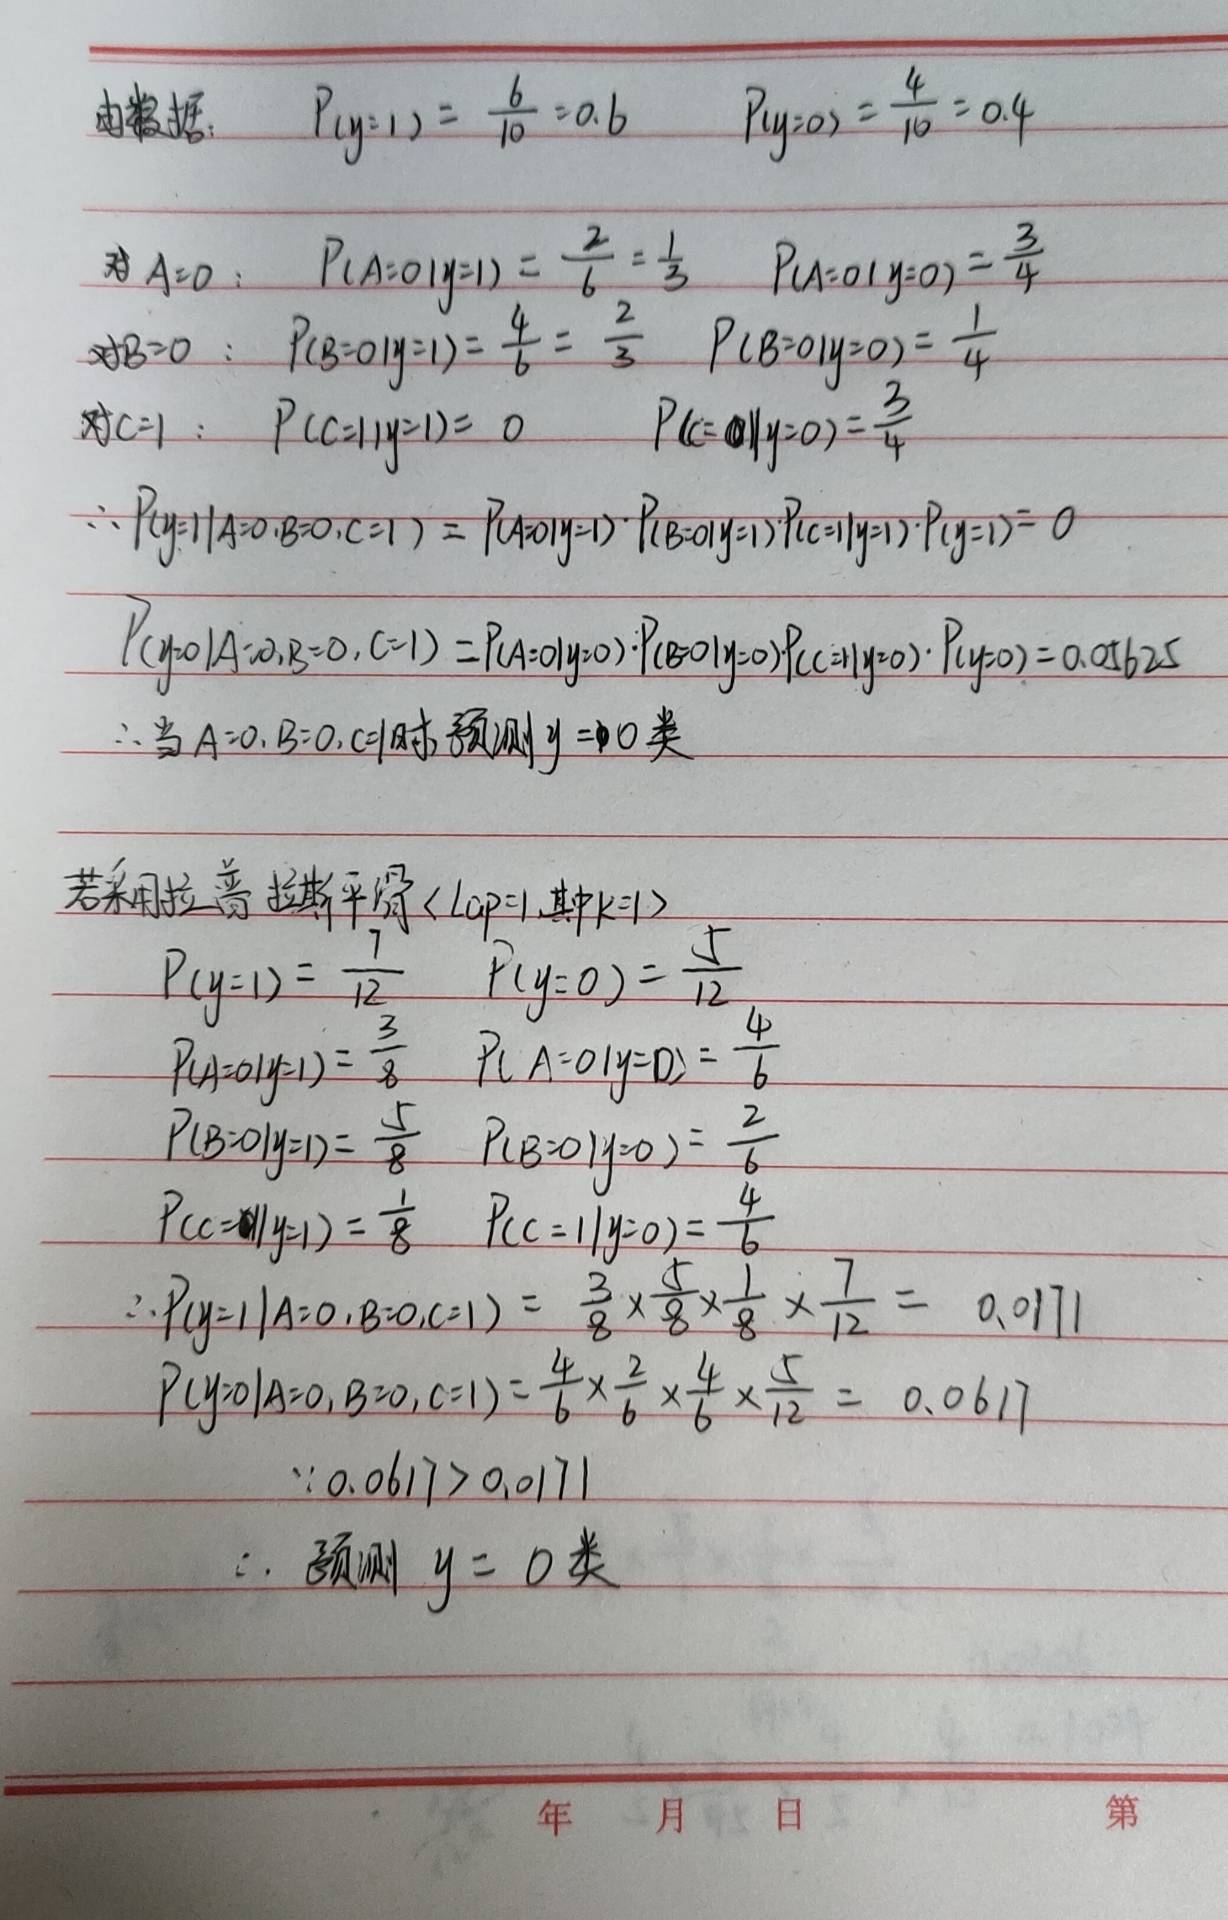 由数据: P(y=1) = 6/10 = 0.6 P(y=0) = 4/10 = 0.4
对A=0: P(A=0|y=1) = 2/6 = 1/3 P(A=0|y=0) = 3/4
对B=0: P(B=0|y=1) = 4/6 = 2/3 P(B=0|y=0) = 1/4
对C=1: P(C=1|y=1) = 0 P(C=1|y=0) = 3/4
∴ P(y=1|A=0,B=0,C=1) = P(A=0|y=1)·P(B=0|y=1)·P(C=1|y=1)·P(y=1) = 0
P(y=0|A=0,B=0,C=1) = P(A=0|y=0)·P(B=0|y=0)·P(C=1|y=0)·P(y=0) = 0.05625
∴ 当A=0.B=0.C=1时预测y=0类
若采用拉普拉斯平滑<Lap=1,其中K=1>
P(y=1) = 7/12 P(y=0) = 5/12
P(A=0|y=1) = 3/8 P(A=0|y=0) = 4/6
P(B=0|y=1) = 5/8 P(B=0|y=0) = 2/6
P(C=1|y=1) = 1/8 P(C=1|y=0) = 4/6
∴ P(y=1|A=0,B=0,C=1) = 3/8 × 5/8 × 1/8 × 7/12 = 0.0171
P(y=0|A=0,B=0,C=1) = 4/6 × 2/6 × 4/6 × 5/12 = 0.0617
∵ 0.0617 > 0.0171
∴ 预测 y = 0类
年 月 日 第